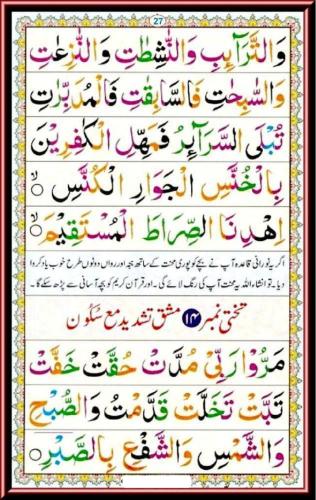 27
وَالتَّرَآئِبِ وَالنّٰشِطٰتِ وَالنّٰزِعٰتِ
وَالسّٰبِحٰتِ فَالسّٰبِقٰتِ فَالْمُدَبِّرٰتِ
تُبْلَى السَّرَآئِرُ فَمَهِّلِ الْكٰفِرِيْنَ
بِالْخُنَّسِ الْجَوَارِ الْكُنَّسِ
اِهْدِنَا الصِّرَاطَ الْمُسْتَقِيْمَ
اگر یہ نورانی قاعدہ آپ نے بچے کو پوری محنت کے ساتھ ہجہ اور رواں دونوں طرح خوب یاد کروا
دیا۔ تو انشاء اللہ یہ محنت آپ کی رنگ لائے گی۔ اور قرآن کریم کو بچہ آسانی سے پڑھ سکے گا۔
تختی نمبر ۱۴ مشق تشدید مع سکون
مَرُّوْا رَبِّىْ مُدَّتْ حُقَّتْ خَفَّتْ
تَبَّتْ تَخَلَّتْ قَدَّمَتْ وَالصُّبْحِ
وَالشَّمْسِ وَالشَّفْعِ بِالصَّبْرِ